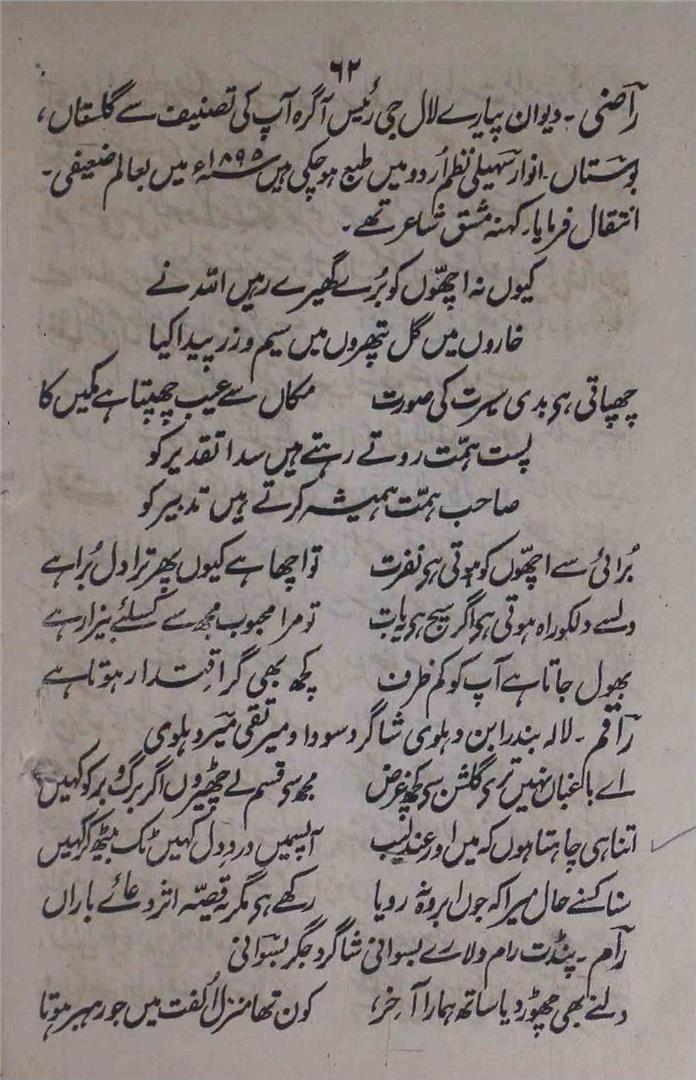 ۶۲
راضی ۔ دیوان پیارے لال جی رئیس آگرہ آپ کی تصنیف سے گلستاں،
بوستاں ۔ انوار سہیلی نظم اُردو میں طبع ہو چکی ہیں ۱۸۹۵ء میں بعالم ضعیفی ۔
انتقال فرمایا۔ کہنہ مشق شاعر تھے۔
کیوں نہ اچھّوں کو بُرے گھیرے رہیں اللہ نے
خاروں میں گل پتھروں میں سیم و زر پیدا کیا
چھپاتی ہی بدی سیرت کی صورت مکاں سے عیب چھپتا ہے مکیں کا
پست ہمّت روتے رہتے ہیں سدا تقدیر کو
صاحب ہمّت ہمیشہ کرتے ہیں تدبیر کو
بُرائی سے اچھّوں کو ہوتی ہی نفرت تو اچھا ہے کیوں پھر ترا دل بُرا ہے
دلسے دلکو راہ ہوتی ہی اگر سچ ہی یہ بات تو مرا محبوب مجھ سے کسلئے بیزار ہے
بھول جاتا ہے آپ کو کم ظرف کچھ بھی گر اقتدار ہوتا ہے
راقم ۔ لالہ بندرابن دہلوی شاگرد سودا و میر تقی میر دہلوی
اے باغباں نہیں تری گلشن سی کچھ غرض مجھ سی قسم لے چھیڑوں اگر برگ و بر کو کہیں
اتنا ہی چاہتا ہوں کہ میں اور عندلیب آپسمیں درد دل کہیں ٹک بیٹھ کر کہیں
سنا کسنے حال میرا کہ جوں ابر وہ نہ رویا رکھے ہی مگر یہ قصّہ اثر دعائے باراں
رام ۔ پنڈت رام دلارے بسوانی شاگرد جگر بسوانی
دلنے بھی چھوڑ دیا ساتھ ہمارا آخر، کون تھا منزل اُلفت میں جو رہبر ہوتا